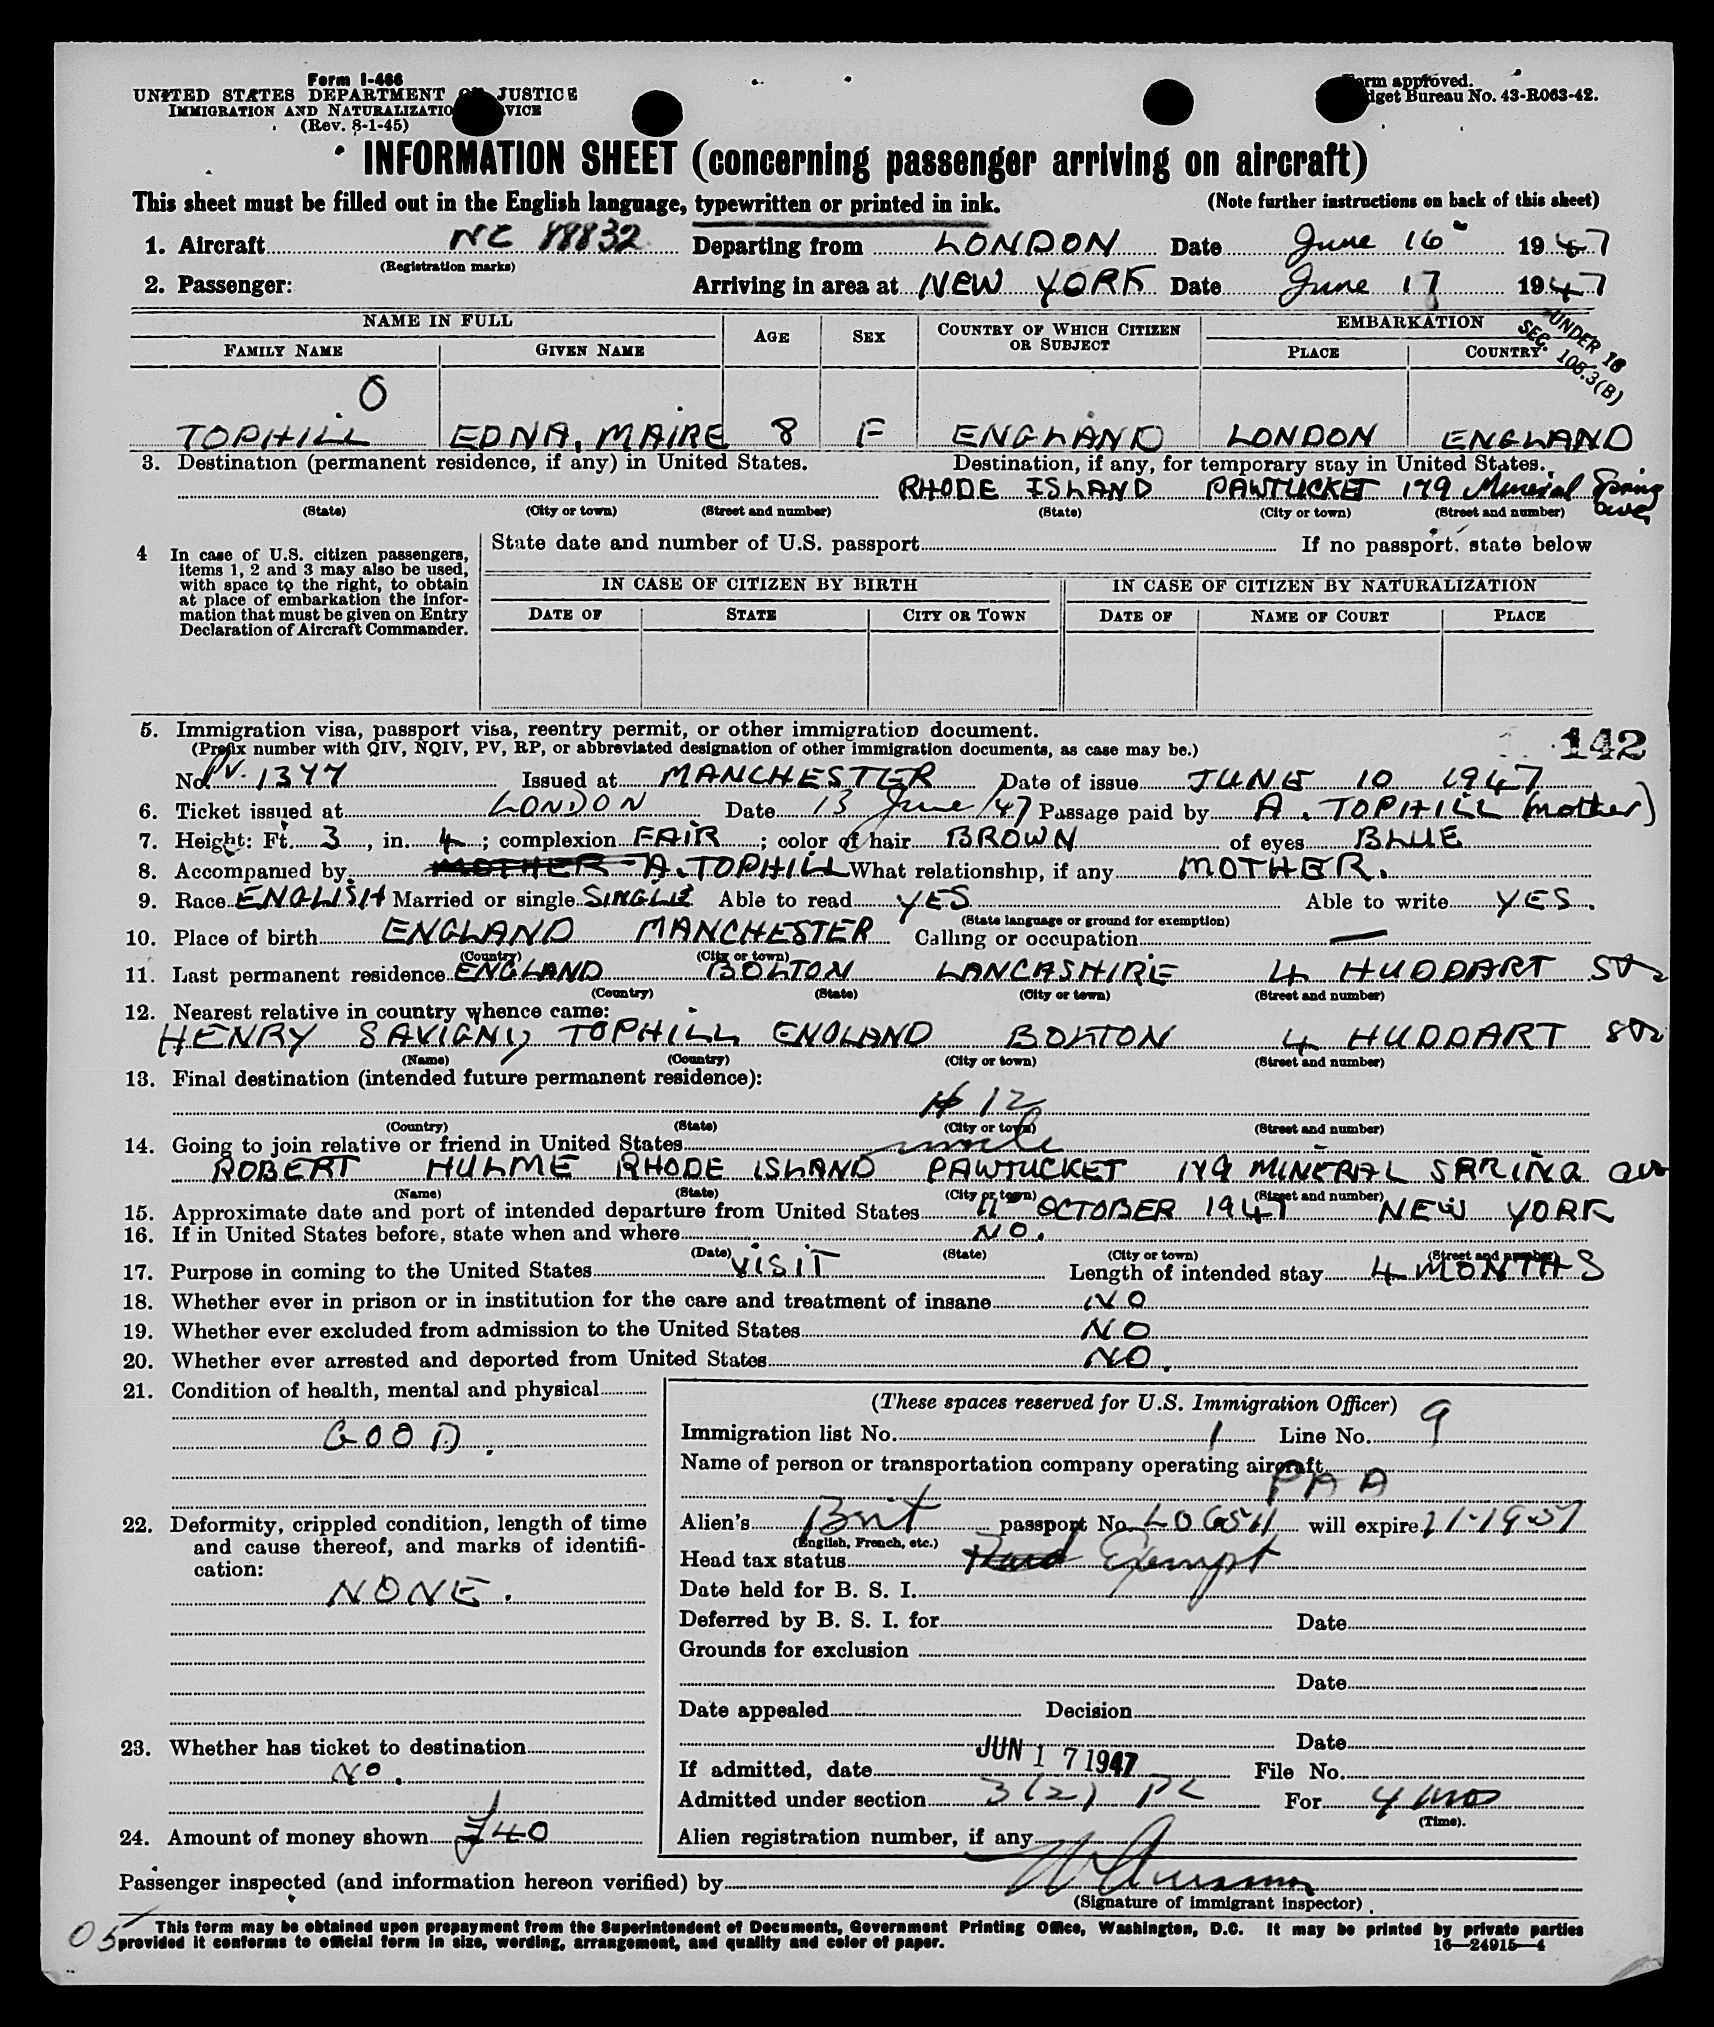 Form I-466
UNITED STATES DEPARTMENT OF JUSTICE
IMMIGRATION AND NATURALIZATIO VICE
(Rev. 8-1-45)
Form approved.
dget Bureau No. 43-R063-42.
INFORMATION SHEET (concerning passenger arriving on aircraft)
This sheet must be filled out in the English language, typewritten or printed in ink.
(Note further instructions on back of this sheet)
1. Aircraft NC 88832 Departing from LONDON Date June 16 1947
(Registration marks)
2. Passenger: Arriving in area at NEW YORK Date June 17 1947
NAME IN FULL AGE SEX COUNTRY OF WHICH CITIZEN OR SUBJECT EMBARKATION
FAMILY NAME GIVEN NAME PLACE COUNTRY
UNDER 16
SEC. 105.3(B)
O
TOPHILL EDNA, MAIRE 8 F ENGLAND LONDON ENGLAND
3. Destination (permanent residence, if any) in United States. Destination, if any, for temporary stay in United States.
RHODE ISLAND PAWTUCKET 179 Mineral Spring ave
(State) (City or town) (Street and number) (State) (City or town) (Street and number)
4 In case of U.S. citizen passengers, items 1, 2 and 3 may also be used, with space to the right, to obtain at place of embarkation the information that must be given on Entry Declaration of Aircraft Commander.
State date and number of U.S. passport If no passport, state below
IN CASE OF CITIZEN BY BIRTH IN CASE OF CITIZEN BY NATURALIZATION
DATE OF STATE CITY OR TOWN DATE OF NAME OF COURT PLACE
5. Immigration visa, passport visa, reentry permit, or other immigration document.
(Prefix number with QIV, NQIV, PV, RP, or abbreviated designation of other immigration documents, as case may be.)
142
No. PV. 1377 Issued at MANCHESTER Date of issue JUNE 10 1947
6. Ticket issued at LONDON Date 13 June /47 Passage paid by A. TOPHILL (mother)
7. Height: Ft. 3, in. 4; complexion FAIR; color of hair BROWN of eyes BLUE
8. Accompanied by MOTHER - A. TOPHILL What relationship, if any MOTHER.
9. Race ENGLISH Married or single SINGLE Able to read YES Able to write YES.
(State language or ground for exemption)
10. Place of birth ENGLAND MANCHESTER Calling or occupation —
(Country) (City or town)
11. Last permanent residence ENGLAND BOLTON LANCASHIRE 4 HUDDART ST
(Country) (State) (City or town) (Street and number)
12. Nearest relative in country whence came:
HENRY SAVIGNY TOPHILL ENGLAND BOLTON 4 HUDDART ST
(Name) (Country) (City or town) (Street and number)
13. Final destination (intended future permanent residence):
12
(Country) (State) (City or town) (Street and number)
14. Going to join relative or friend in United States uncle
ROBERT HULME RHODE ISLAND PAWTUCKET 179 MINERAL SPRING ave
(Name) (State) (City or town) (Street and number)
15. Approximate date and port of intended departure from United States 11 OCTOBER 1947 NEW YORK
16. If in United States before, state when and where NO.
(Date) (State) (City or town) (Street and number)
17. Purpose in coming to the United States VISIT Length of intended stay 4 MONTHS
18. Whether ever in prison or in institution for the care and treatment of insane NO
19. Whether ever excluded from admission to the United States NO
20. Whether ever arrested and deported from United States NO.
21. Condition of health, mental and physical
GOOD.
22. Deformity, crippled condition, length of time and cause thereof, and marks of identification:
NONE.
23. Whether has ticket to destination
No.
24. Amount of money shown £40
(These spaces reserved for U.S. Immigration Officer)
Immigration list No. 1 Line No. 9
Name of person or transportation company operating aircraft
PAA
Alien's Brit passport No. LO6511 will expire
(English, French, etc.)
Head tax status Exempt
Date held for B. S. I.
Deferred by B. S. I. for Date
Grounds for exclusion
Date
Date appealed Decision
Date
If admitted, date JUN 17 1947 File No.
Admitted under section 3(2) PL For 4 mos
(Time).
Alien registration number, if any
Passenger inspected (and information hereon verified) by
(Signature of immigrant inspector)
05
This form may be obtained upon prepayment from the Superintendent of Documents, Government Printing Office, Washington, D.C. It may be printed by private parties
provided it conforms to official form in size, wording, arrangement, and quality and color of paper.
16—24915—4